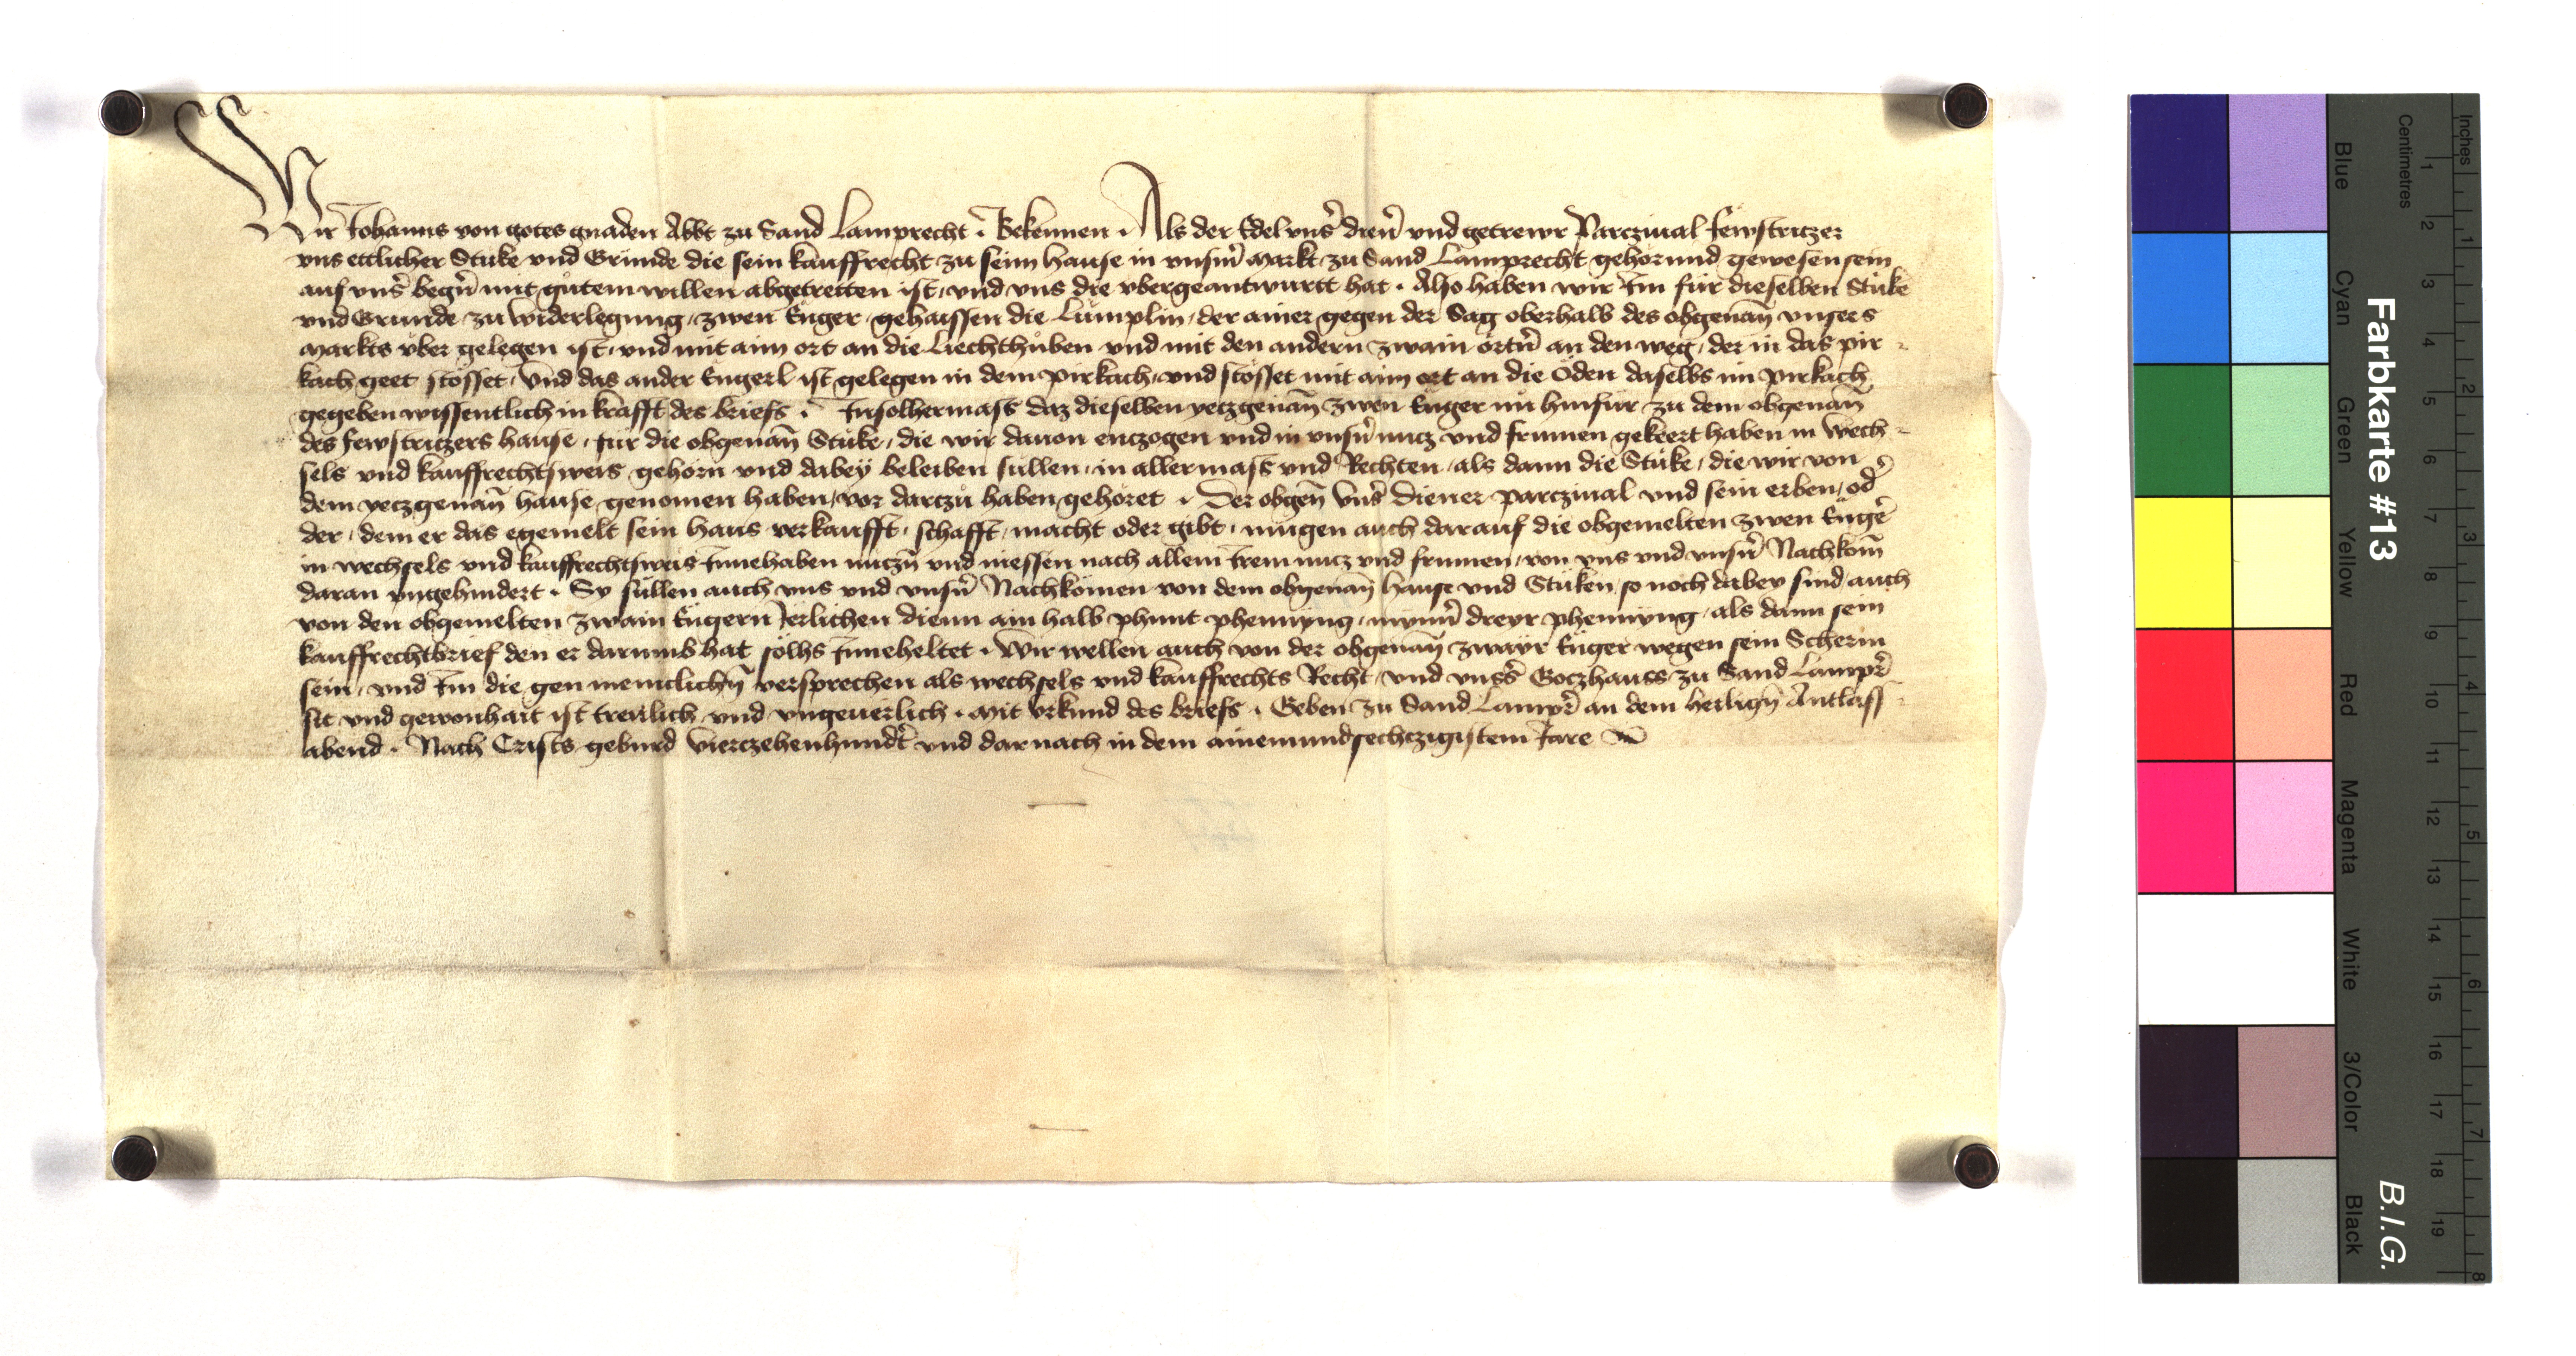 Wir Johanns von gotes gnaden Abbt zu Sand Lamprecht · Bekennen · Als der Edel vnser̄ dien̄ vnd getrewr Parczinal Fewstriczer
vns ettlicher Stuke vnd Gründe die sein kauffrecht zu seim hause in vnserm̄ Markt zu Sand Lamprecht gehörund gewesen sein
auf vnser̄ begern̄ mit gůtem willen abgetretten ist, vnd vns die vbergeantwurtt hat · Also haben wir Im für dieselben Stůke
vnd Gründe zu widerlegung, zwen Enger, gehaissen die Lümplin, der ainer gegen der Sag oberhalb des obgenan̄ vnsers
Markts vber gelegen ist, vnd mit aim ort an die Liechthuben vnd mit den andern zwain örtn̄ an den weg, der in das pir-
kach geet stösset, Vnd das ander Engerl ist gelegen in dem pirkach, vnd stösset mit aim ort an die Öden daselbs im pirkach,
gegeben wissentlich in krafft des briefs · Insolhermass daz dieselben yeczgenan̄ zwen Enger nu hinfür zu dem obgenan̄
des Fewstriczers hause, für die obgenan̄ Stůke, die wir dauon enczogen vnd in vnsern̄ nucz vnd frumen gekeert haben in Wech-
sels vnd kauffrechtsweis gehörn vnd dabey beleiben süllen, in allermass vnd Rechten, als dann die Stůke, die wir von
dem yeczgenan̄ hause genomen haben, vor darczů haben gehöret · Der obgen̄ vnser̄ diener Parczinal vnd sein erben, oder̄
der, dem er das egemelt sein haus verkaufft, schafft, macht oder gibt, mügen auch darauf die obgemelten zwen Enger̄
in wechsels vnd kauffrechtsweis Innehaben nuczn̄ vnd niessen nach allem Irem nucz vnd frumen, von vns vnd vnsern̄ Nachkom̄
daran vngehindert · Sy süllen auch vns vnd vnsern̄ Nachkomen von dem obgenan̄ hause vnd Stuken, so noch dabey sind, auch
von den obgemelten zwain Engern Jerlichen dienn ain halb phunt phennyng, mynnr̄ dreyr phennyng, als dann sein
kauffrechtbrief den er darumb hat sölhs Inneheltet · Wir wellen auch von der obgenan̄ zwayr Enger wegen sein Scherm
sein, vnd Im die gen meniclichn̄ versprechen als wechsels vnd kauffrechts Recht, vnd vnsers̄ Goczhauss zu Sand Lampr̄
sit vnd gewonhait ist trewlich vnd vngeuerlich · Mit vrkund des briefs · Geben zu Sand Lampr̄ an dem heilign̄ Antlass-
abend · Nach Crists geburd Vierczehenhundt̄ vnd darnach in dem ainemundsechczigistem Jare
Farbkarte #13
B.I.G.
Centimetres
Inches
Blue
Cyan
Green
Yellow
Red
Magenta
White
3/Color
Black
1 2 3 4 5 6 7 8 9 10 11 12 13 14 15 16 17 18 19
1 2 3 4 5 6 7 8